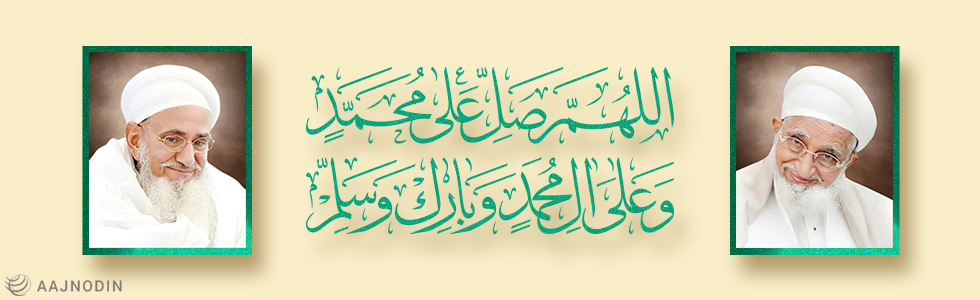 اللهُمَّ صَلِّ عَلٰى مُحَمَّدٍ
وَعَلىٰ اٰلِ مُحَمَّدٍ وَبَارِكْ وَسَلِّمْ
AAJNODIN